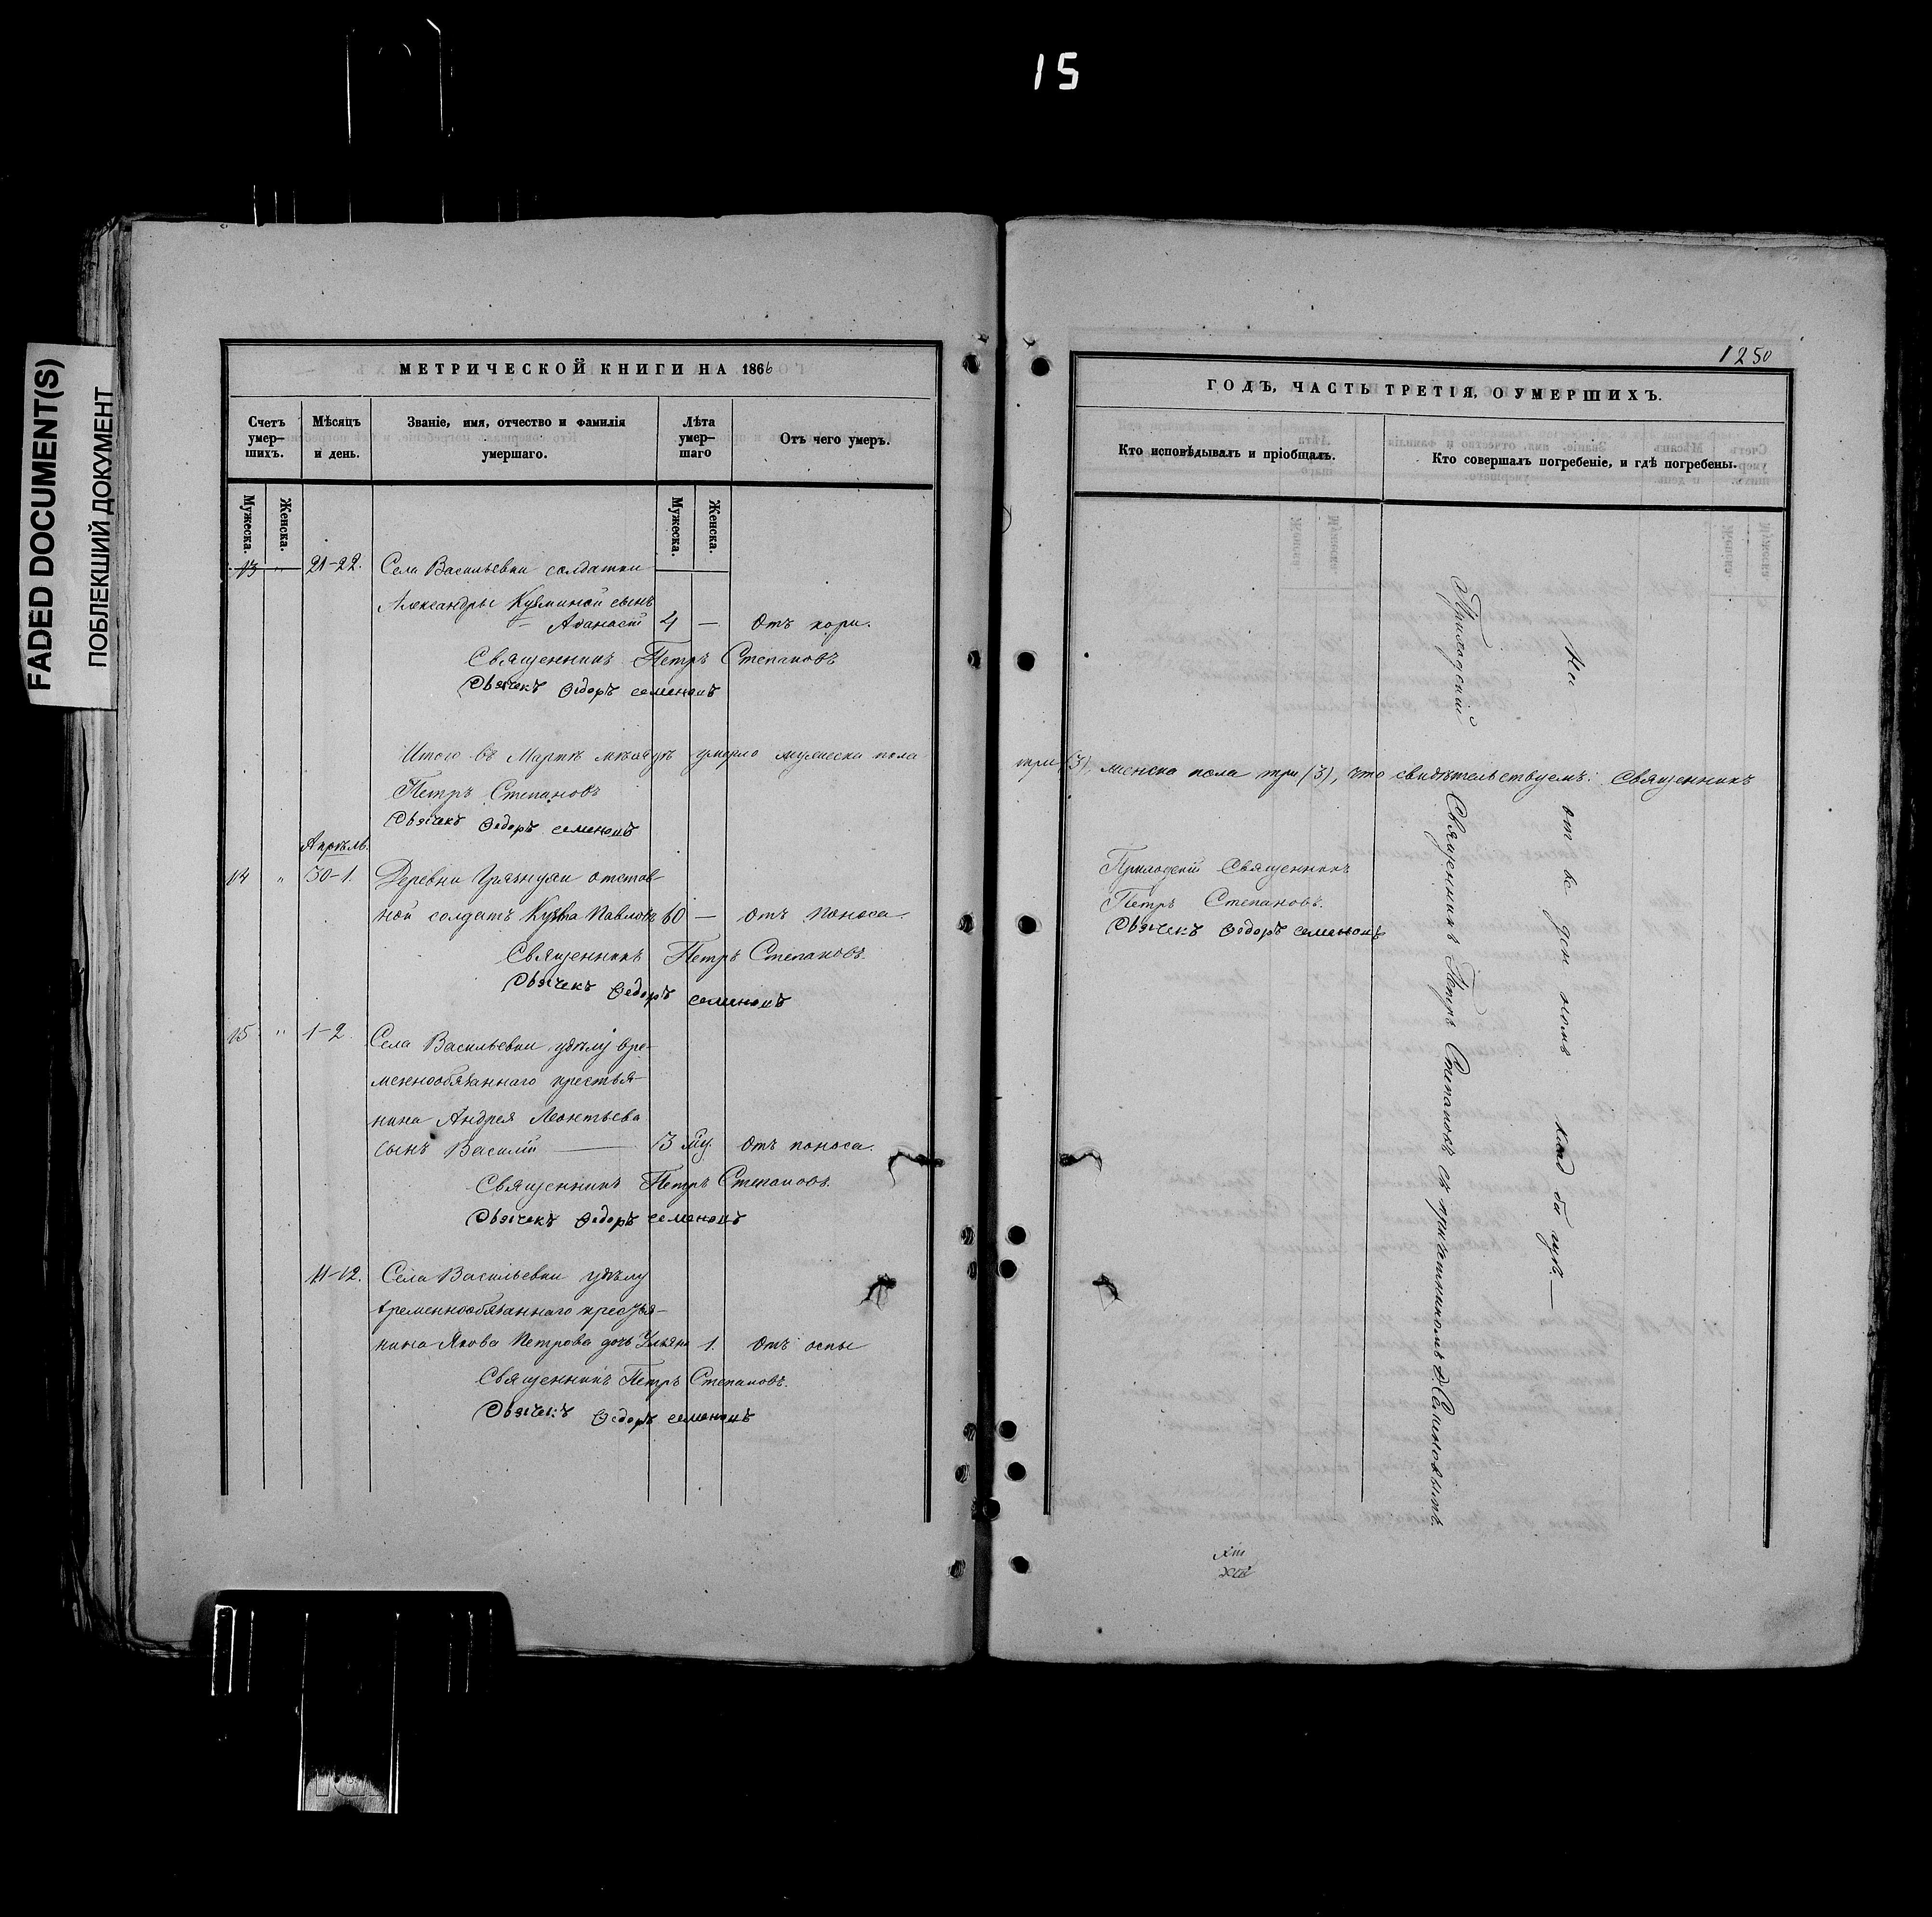 15
FADED DOCUMENT(S)
ПОБЛЕКШИЙ ДОКУМЕНТ
МЕТРИЧЕСКОЙ КНИГИ НА 1866
Счетъ умер-шихъ.
Мѣсяцъ и день.
Званіе, имя, отчество и фамилія умершаго.
Лѣта умер-шаго
Отъ чего умеръ.
Мужеска.
Женска.
Мужеска.
Женска.
13 " 21-22. Села Васильевки солдатки
Александры Кузминой сынъ
Аѳанасій 4 — отъ кори.
Священникъ Петръ Степановъ
Дьячекъ Ѳедоръ Семеновъ
Итого въ Мартѣ мѣсяцѣ умерло мужеска пола
Петръ Степановъ
Дьячекъ Ѳедоръ Семеновъ
Апрѣль.
14 " 30-1. Деревни отстав-
ной солдатъ Кузма Павловъ 60 — отъ поноса.
Священникъ Петръ Степановъ.
Дьячекъ Ѳедоръ Семеновъ
15 " 1-2. Села Васильевки удѣлу вре-
меннообязаннаго крестья-
нина Андрея Леонтьева
сынъ Василій — 3 отъ поноса.
Священникъ Петръ Степановъ.
Дьячекъ Ѳедоръ Семеновъ
11-12. Села Васильевки удѣлу
временнообязаннаго крестья-
нина Якова Петрова дочь 1. отъ оспы
Священникъ Петръ Степановъ.
Дьячекъ Ѳедоръ Семеновъ
1250
ГОДЪ, ЧАСТЬ ТРЕТІЯ, О УМЕРШИХЪ.
Кто исповѣдывалъ и пріобщалъ.
Кто совершалъ погребеніе, и гдѣ погребены.
три (3), женска пола три (3), что свидѣтельствуемъ: Священникъ
Приходскій Священникъ
Петръ Степановъ.
Дьячекъ Ѳедоръ Семеновъ
Приходскій Священникъ Петръ Степановъ съ причетникомъ Ѳ. Семеновымъ.
На отведенномъ кладбищѣ.—